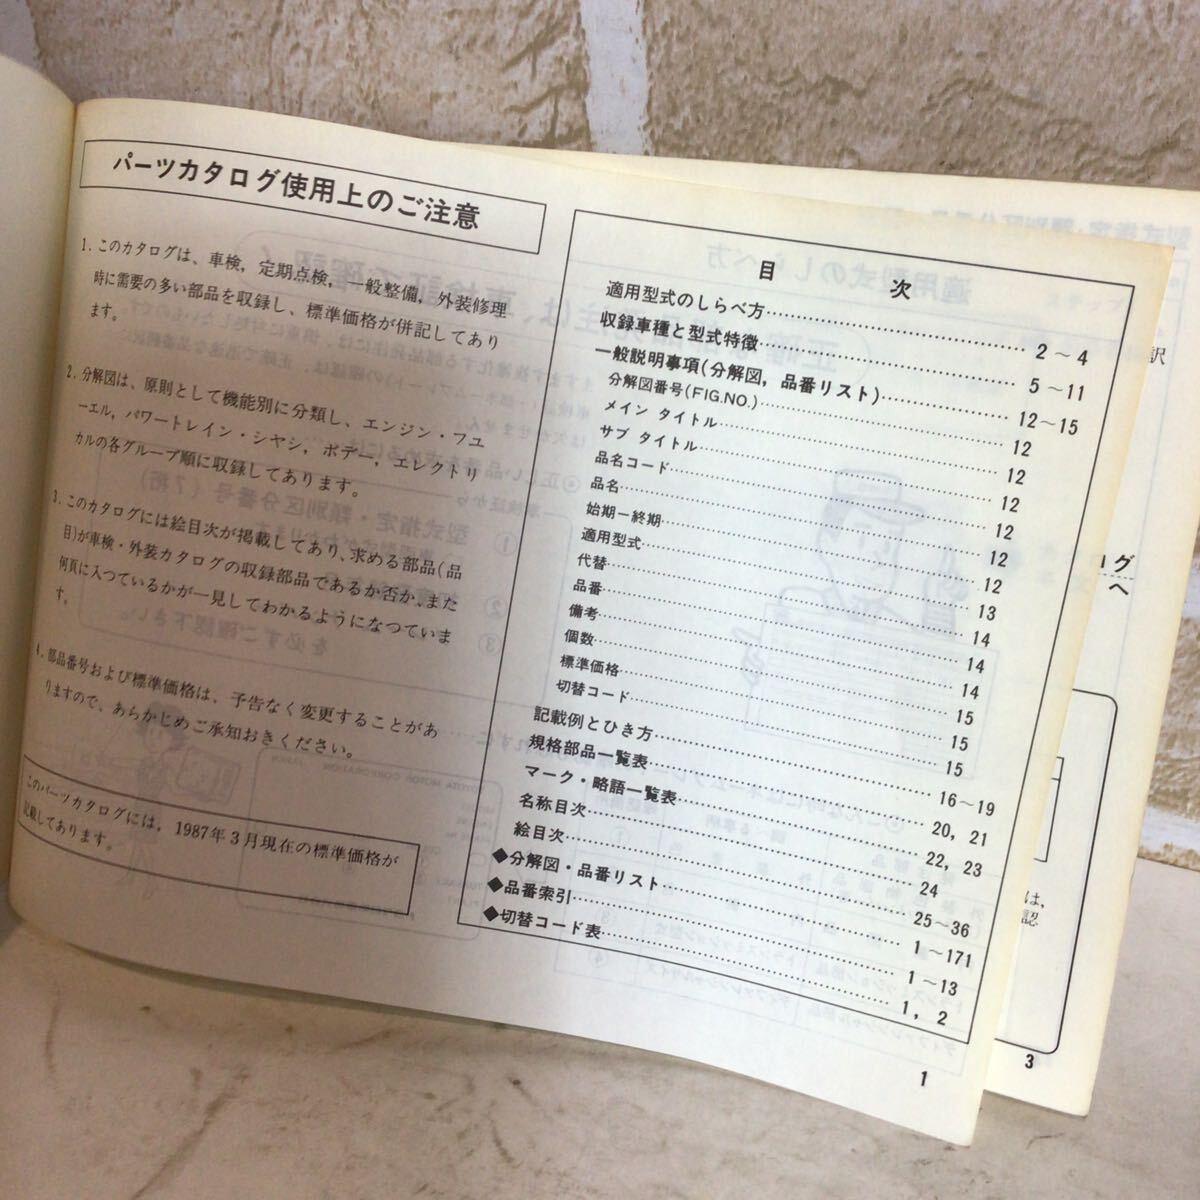 パーツカタログ使用上のご注意
1. このカタログは、車検，定期点検，一般整備，外装修理
時に需要の多い部品を収録し、標準価格が併記してあり
ます。
2. 分解図は、原則として機能別に分類し、エンジン・フユ
ーエル，パワートレイン・シヤシ，ボデー，エレクトリ
カルの各グループ順に収録してあります。
3. このカタログには絵目次が掲載してあり、求める部品(品
目)が車検・外装カタログの収録部品であるか否か、また
何頁に入つているかが一見してわかるようになつていま
す。
4. 部品番号および標準価格は、予告なく変更することがあ
りますので、あらかじめご承知おきください。
このパーツカタログには、1987年3月現在の標準価格が
記載してあります。
目 次
適用型式のしらべ方 2～4
収録車種と型式特徴 5～11
一般説明事項(分解図，品番リスト) 12～15
分解図番号(FIG.NO.) 12
メイン タイトル 12
サブ タイトル 12
品名コード 12
品名 12
始期－終期 12
適用型式 13
代替 14
品番 14
備考 14
個数 15
標準価格 15
切替コード 15
記載例とひき方 16～19
規格部品一覧表 20，21
マーク・略語一覧表 22，23
名称目次 24
絵目次 25～36
◆分解図・品番リスト 1～171
◆品番索引 1～13
◆切替コード表 1，2
1
訳
ログ
へ
は，
認
3